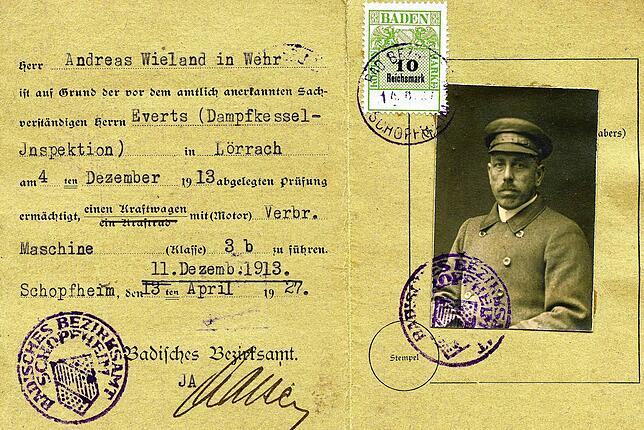 Herr Andreas Wieland in Wehr
ist auf Grund der vor dem amtlich anerkannten Sach-
verständigen Herrn Everts (Dampfkessel-
Jnspektion) in Lörrach
am 4 ten Dezember 1913 abgelegten Prüfung
ermächtigt, einen Kraftwagen mit (Motor) Verbr.
ein Kraftrad
Maschine (Klasse) 3 b zu führen.
11.Dezemb.1913.
Schopfheim, den 13 ten April 1927.
Badisches Bezirksamt.
JA
BADISCHES BEZIRKSAMT
SCHOPFHEIM
BADEN
10
Reichsmark
SCHOPFH
abers)
Stempel